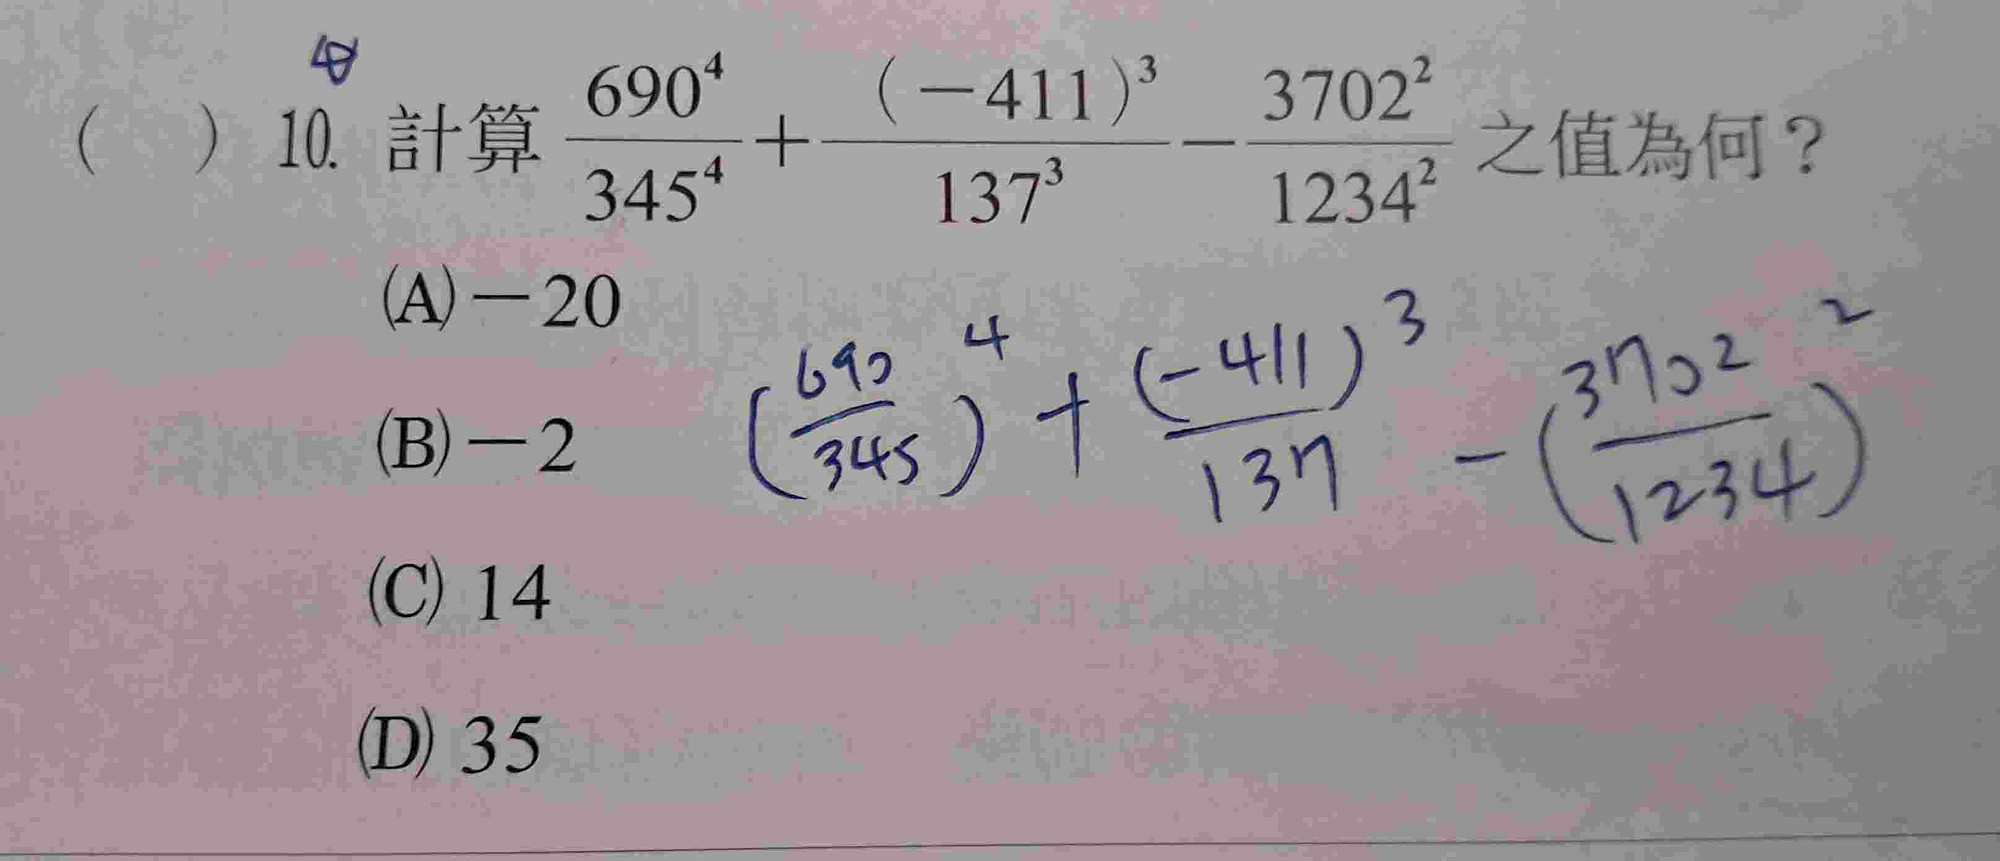 ( ) 10. 計算 690⁴/345⁴ + (−411)³/137³ − 3702²/1234² 之值為何？
(A) −20
(B) −2
(C) 14
(D) 35
(690/345)⁴ + (−411)³/137 − (3702/1234)²